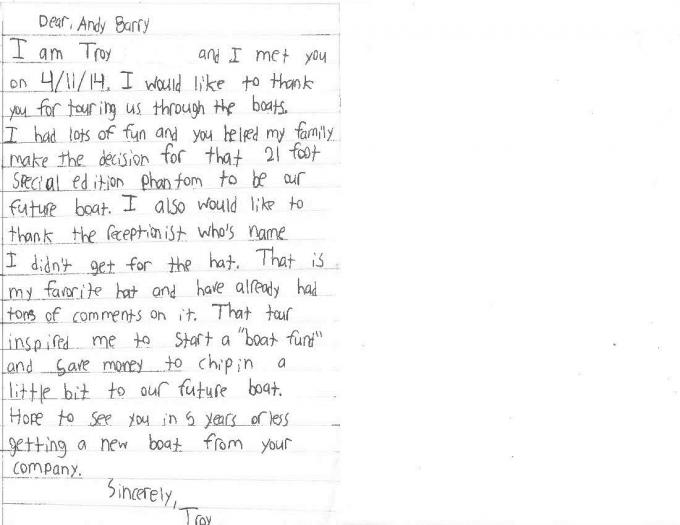 Dear, Andy Barry
I am Troy and I met you
on 4/11/14. I would like to thank
you for touring us through the boats.
I had lots of fun and you helped my family
make the decision for that 21 foot
special edition phantom to be our
future boat. I also would like to
thank the receptionist who's name
I didn't get for the hat. That is
my favorite hat and have already had
tons of comments on it. That tour
inspired me to start a "boat fund"
and save money to chip in a
little bit to our future boat.
Hope to see you in 5 years or less
getting a new boat from your
company.
Sincerely,
Troy